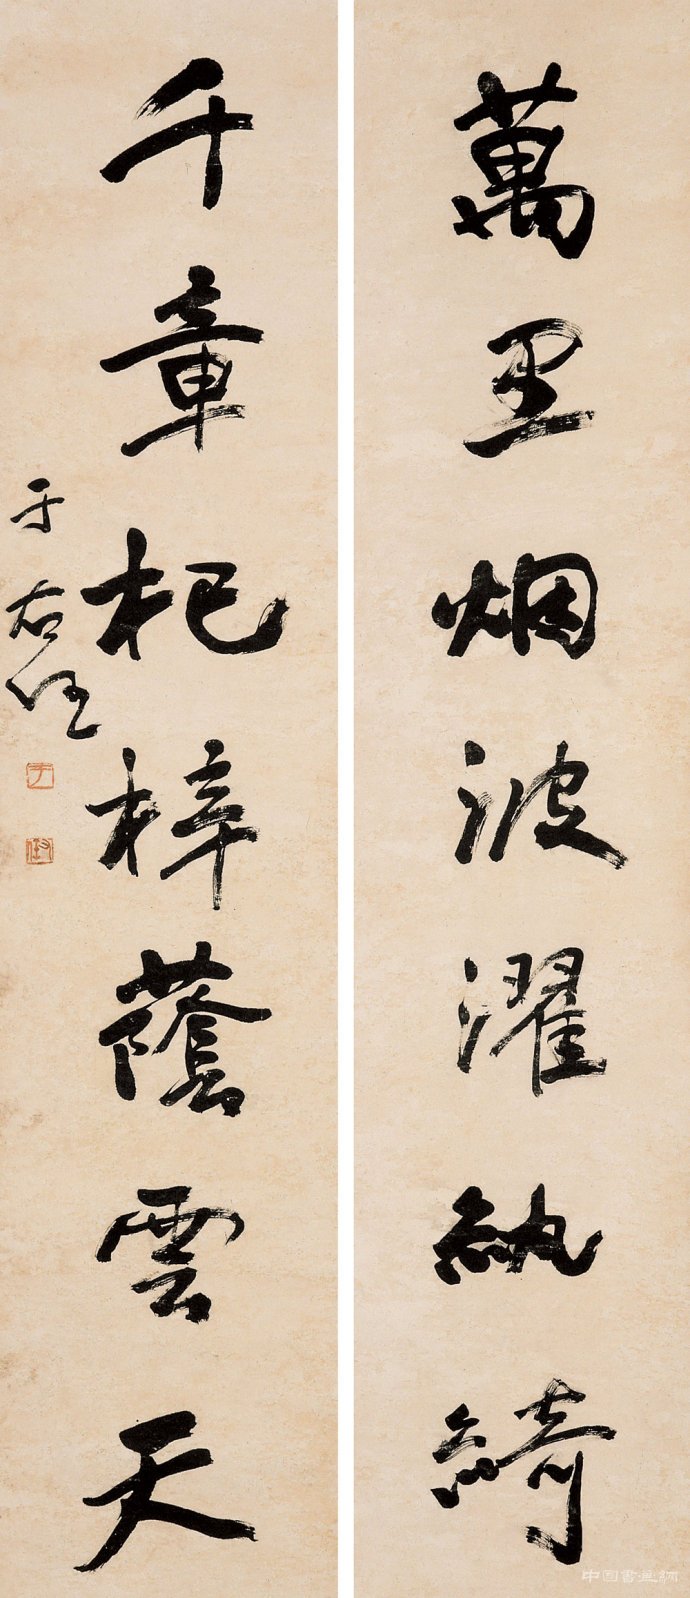 萬里烟波濯紈綺
千章杞梓蔭雲天
于右任
中国書画網